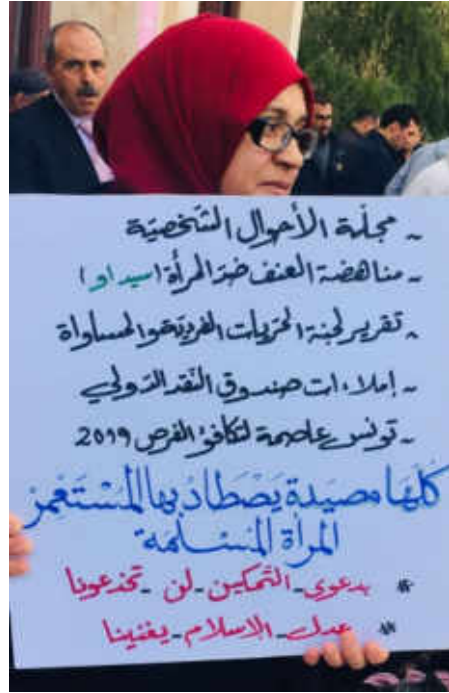 - مجلّة الأحوال الشّخصيّة
- مناهضة العنف ضدّ المرأة (سيداو)
- تقرير لجنة الحرّيات الفرديّة والمساواة
- إملاءات صندوق النّقد الدّولي
- تونس عاصمة لتكافؤ الفرص 2019
كُلّهَا مصيَدة يَصْطادُ بها المُسْتَعْمِر
المرأة المُسْلمة
# بدعوى_التمكين_لن_تخدعونا
# عدل_الاسلام_يغنينا